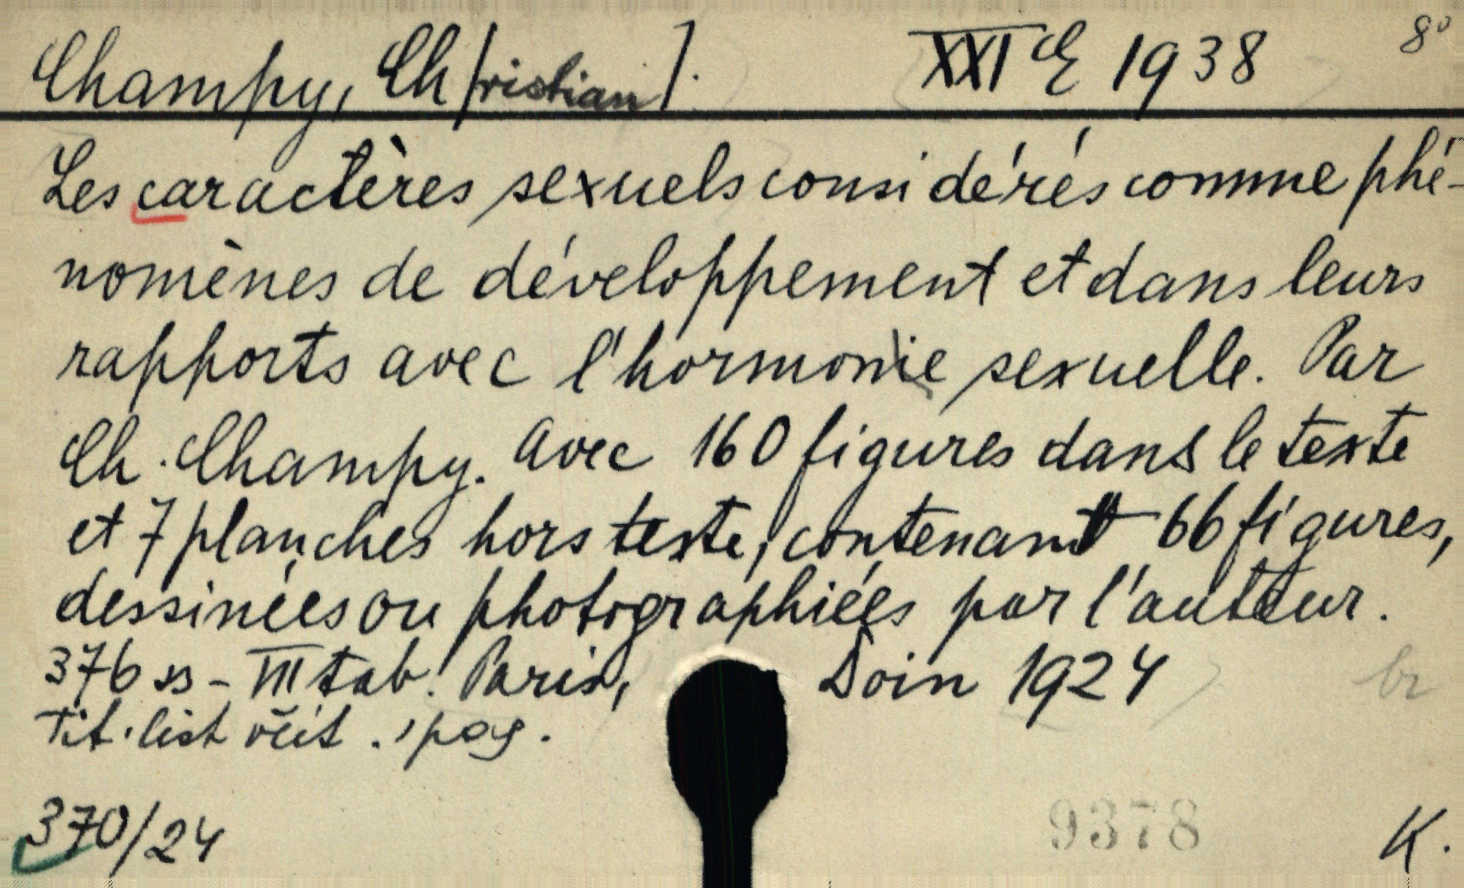 Champy, Ch[ristian]. XXI E 1938 8°
Les caractères sexuels considérés comme phé-
nomènes de développement et dans leurs
rapports avec l'hormonie sexuelle. Par
Ch. Champy. Avec 160 figures dans le texte
et 7 planches hors texte, contenant 66 figures,
dessinées ou photographiées par l'auteur.
376 ss - VII tab. Paris, Doin 1924 br
Tit. list včit. pag.
370/24 9378 K.